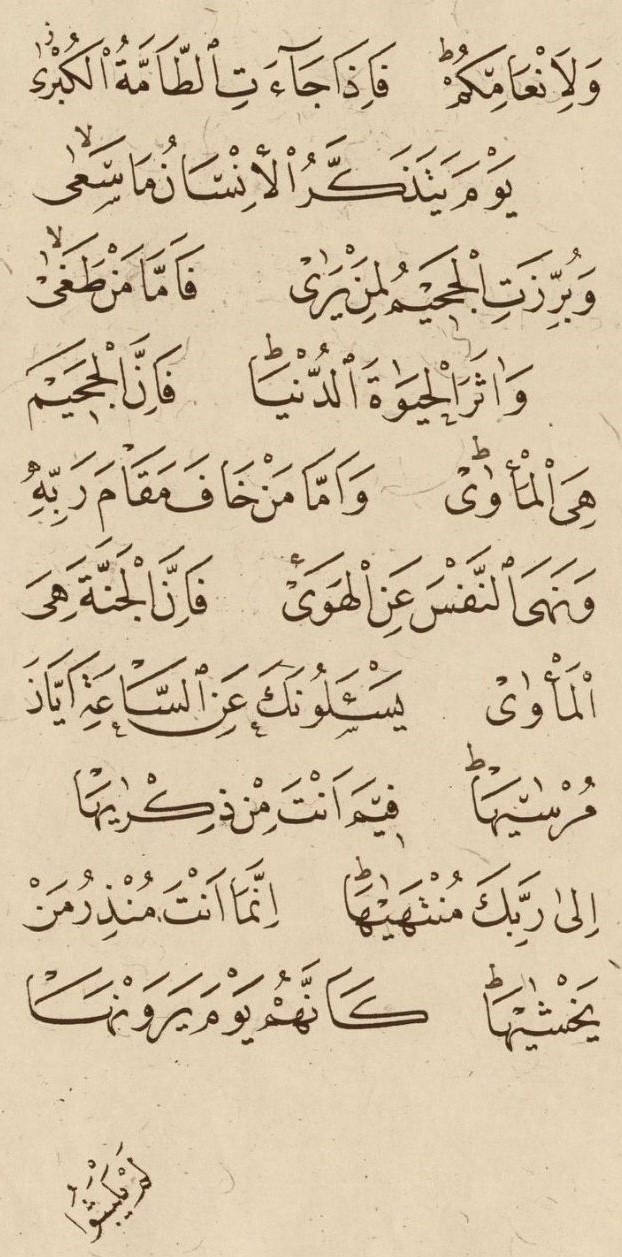 وَلِاَنْعَامِكُمْ ط فَاِذَا جَآءَتِ ٱلطَّآمَّةُ ٱلْكُبْرٰى ز
يَوْمَ يَتَذَكَّرُ ٱلْاِنْسَانُ مَا سَعٰى لا
وَبُرِّزَتِ ٱلْجَحِيمُ لِمَنْ يَرٰى فَاَمَّا مَنْ طَغٰى لا
وَاٰثَرَ ٱلْحَيٰوةَ ٱلدُّنْيَا ط فَاِنَّ ٱلْجَحِيمَ
هِىَ ٱلْمَأْوٰى ط وَاَمَّا مَنْ خَافَ مَقَامَ رَبِّهِ
وَنَهَى ٱلنَّفْسَ عَنِ ٱلْهَوٰى فَاِنَّ ٱلْجَنَّةَ هِىَ
ٱلْمَأْوٰى يَسْـَٔلُونَكَ عَنِ ٱلسَّاعَةِ اَيَّانَ
مُرْسٰيهَا ط فِيمَ اَنْتَ مِنْ ذِكْرٰيهَا
اِلٰى رَبِّكَ مُنْتَهٰيهَا ط اِنَّمَا اَنْتَ مُنْذِرُ مَنْ
يَخْشٰيهَا ط كَاَنَّهُمْ يَوْمَ يَرَوْنَهَا
لَمْ يَلْبَثُوا